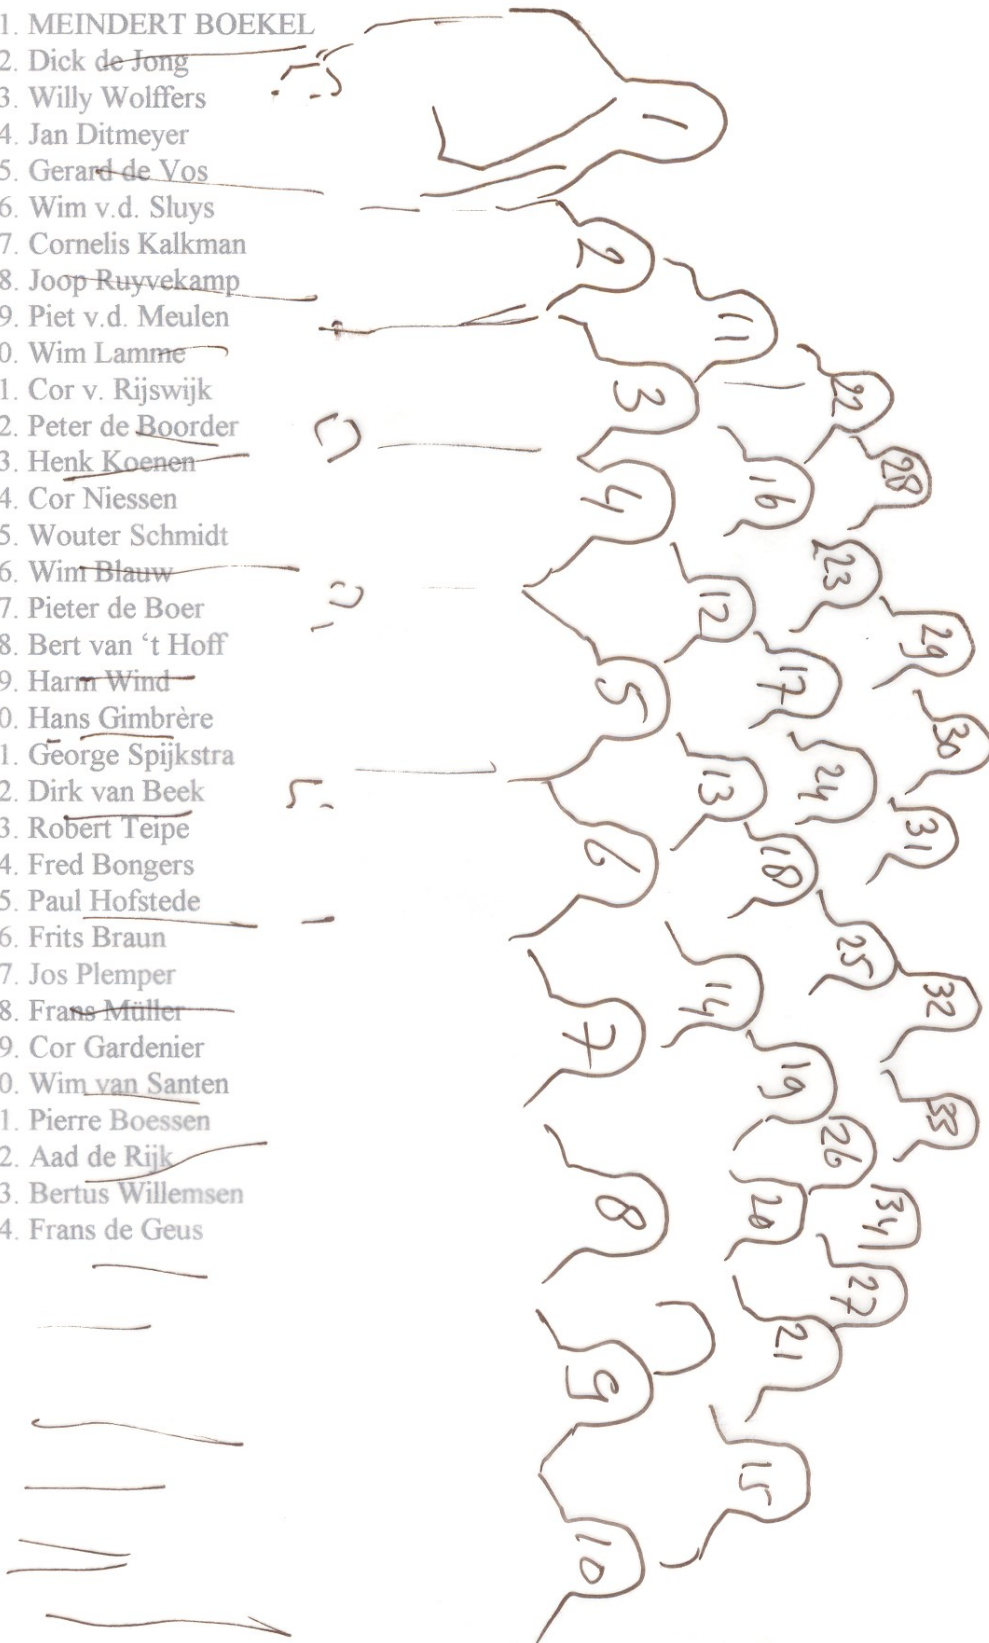 1. MEINDERT BOEKEL
2. Dick de Jong
3. Willy Wolffers
4. Jan Ditmeyer
5. Gerard de Vos
6. Wim v.d. Sluys
7. Cornelis Kalkman
8. Joop Ruyvekamp
9. Piet v.d. Meulen
0. Wim Lamme
1. Cor v. Rijswijk
2. Peter de Boorder
3. Henk Koenen
4. Cor Niessen
5. Wouter Schmidt
6. Wim Blauw
7. Pieter de Boer
8. Bert van ‘t Hoff
9. Harm Wind
0. Hans Gimbrère
1. George Spijkstra
2. Dirk van Beek
3. Robert Teipe
4. Fred Bongers
5. Paul Hofstede
6. Frits Braun
7. Jos Plemper
8. Frans Müller
9. Cor Gardenier
0. Wim van Santen
1. Pierre Boessen
2. Aad de Rijk
3. Bertus Willemsen
4. Frans de Geus
1
2
11
3
22
4
16
28
12
23
5
17
29
30
13
24
6
18
31
25
7
14
32
19
33
8
26
20
34
27
9
21
15
10